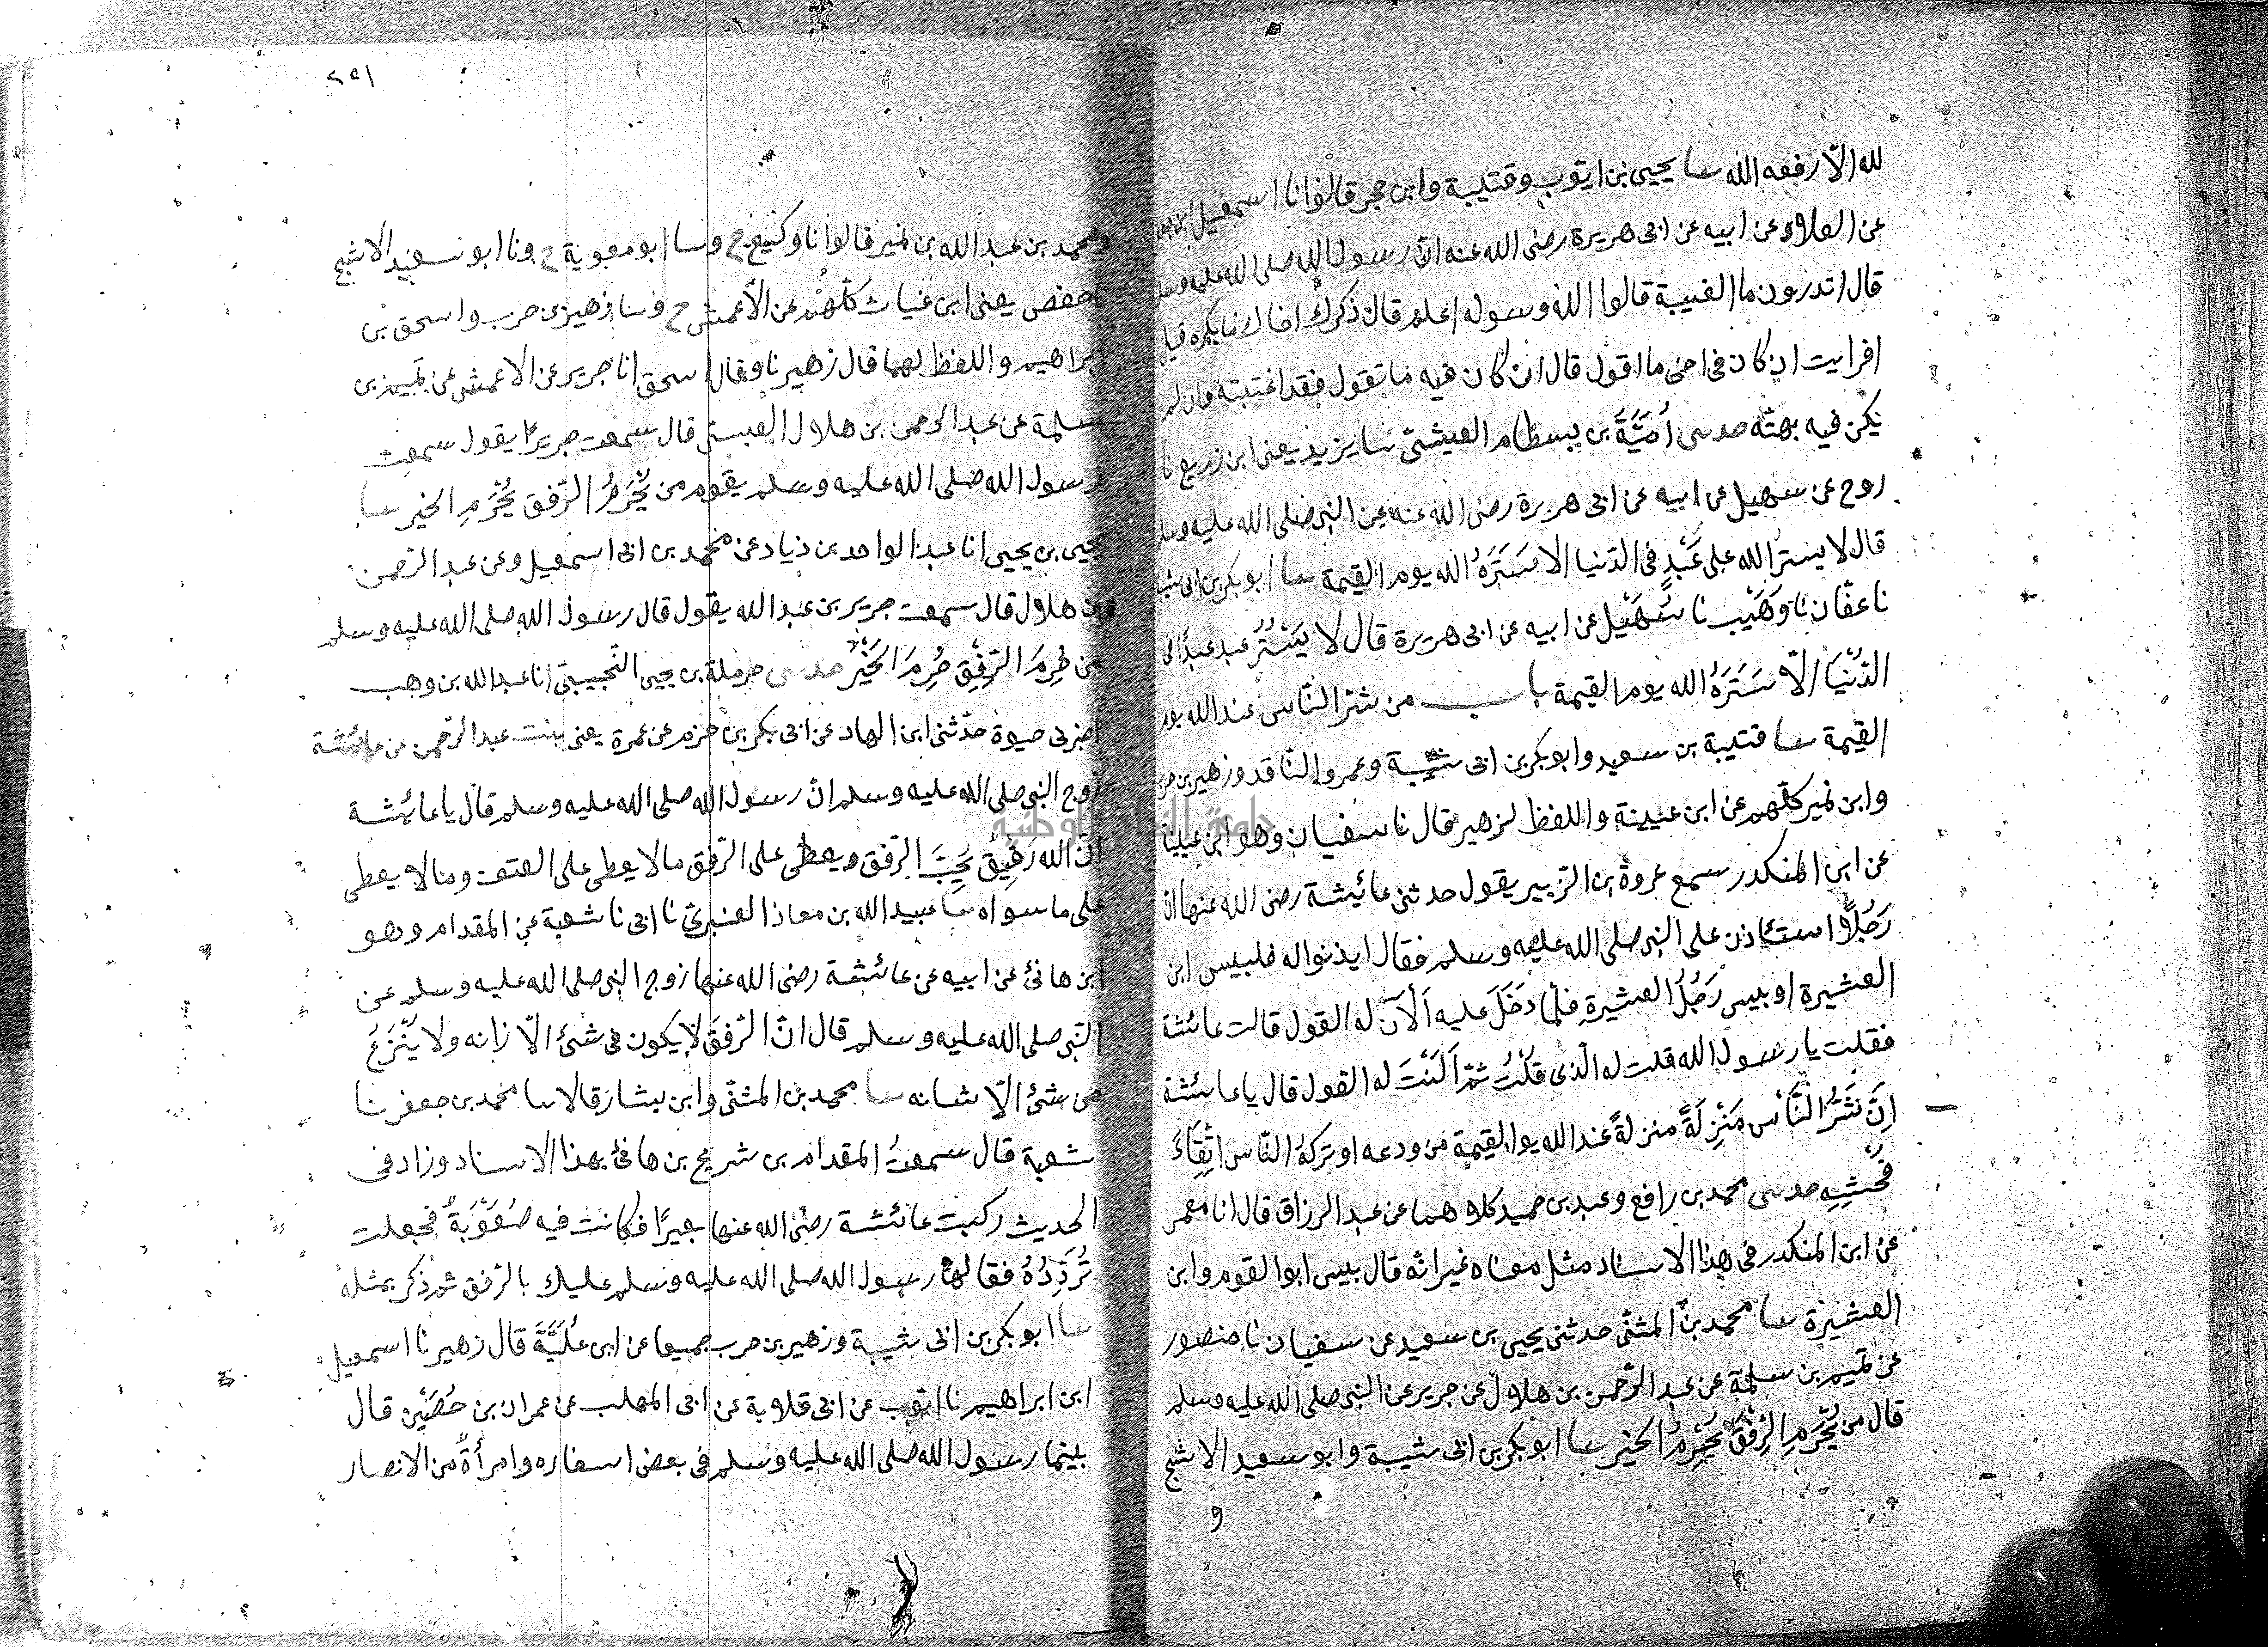 لله الّا رفعه الله سا يحيى بن ايّوب وقتيبة وابن حجر قالوا نا اسمعيل ابن جعفر
عن العلاء عن ابيه عن ابى هريرة رضى الله عنه انّ رسول الله صلى الله عليه وسلم
قال اتدرون ما الغيبة قالوا الله ورسوله اعلم قال ذكرك اخاك بما يكره قيل
افرايت ان كان فى اخى ما اقول قال ان كان فيه ما تقول فقد اغتبته وان لم
يكن فيه بهتّه حدسى اُميَّةَ بن بسطام العيشىّ سا يزيد يعنى ابن زريع نا
روح عن سهيل عن ابيه عن ابى هريرة رضى الله عنه عن النبى صلى الله عليه وسلم
قال لا يستر الله على عَبْدٍ فى الدّنيا الا سَتَرَهُ الله يوم القيمة سا ابو بكر بن ابى شيبة
نا عفّان نا وَهَيْب نا سُهَيْل عن ابيه عن ابى هريرة قال لا يَسْتُرُ عبد عبدًا فى
الدُّنْيَا الّا سَتَرَهُ الله يوم القيمة باب من شرّ النّاس عند الله يوم
القيمة سا قتيبة بن سعيد وابو بكر بن ابى شيبة وعمرو النّاقد وزهير بن حرب
وابن نمير كلّهم عن ابن عيينة واللفظ لزهير قال نا سفيان وهو ابن عيينة
عن ابن المنكدر سمع عروة بن الزّبير يقول حدثنى عائيشة رضى الله عنها انّ
رَجُلًا استئاذن على النبى صلى الله عليه وسلم فقال ايذنوا له فلبيس ابن
العشيرة او بيس رَجُلُ العشيرةِ فلمّا دَخَلَ عليه اَلَانَ له القول قالت عائشة
فقلت يا رسول الله قلت له الّذى قُلْتَ ثمّ اَلَنْتَ له القول قال يا عائشة
اِنَّ شَرَّ النَّاسِ مَنْزِلَةً منزلةً عند الله يوا القيمة من ودعه او تركهُ النّاس اتّقِاءَ
فُحْشِهِ حدسى محمد بن رافع وعبد بن حميد كلا هما عن عبد الرزاق قال انا معمر
عن ابن المنكدر فى هذا الاسناد مثل معناه غير انّه قال بيس ابوا القوم وابن
العشيرة سا محمد بن المثنّى حدثنى يحيى بن سعيد عن سفيان نا منصور
عن تميم بن سلمة عن عبد الرّحمن بن هلال عن جرير عن النبى صلى الله عليه وسلم
قال من يُحْرَمِ الرِّفْقَ يُحْرَمُ الخير سا ابو بكر بن ابى شيبة وابو سعيد الاشج
و
٢٥١
ومحمد بن عبد الله بن نمير قالوا نا وكيع ح وسا ابو معوية ح ونا ابو سعيد الاشج
نا حفص يعنى ابن غياث كلّهُم عن الاعمش ح وسا زهير بن حرب واسحق بن
ابراهيم واللفظ لهما قال زهير نا وقال اسحق انا جرير عن الاعمش عن تميم بن
سلمة عن عبد الرحمن بن هلال العبسىّ قال سمعت جريرًا يقول سمعت
رسول الله صلى الله عليه وسلم يقوم من يُحْرَمُ الرّفق يُحْرَمِ الخير سا
يحيى بن يحيى انا عبد الواحد بن زياد عن محمد بن ابى اسمعيل وعن عبد الرّحمن
بن هلال قال سمعت جرير بن عبد الله يقول قال رسول الله صلى الله عليه وسلم
من حُرِمَ الرِّفِقِ حُرِمَ الخَيْر حدسى حرملة بن يحيى التّجيبىّ انا عبد الله بن وهب
اخبرنى حيوة حدّثنى ابن الهاد عن ابى بكر بن حزم عن عمرة يعنى بنت عبد الرّحمن عن عائشة
زوج النبى صلى الله عليه وسلم انّ رسول الله صلى الله عليه وسلم قال يا عائشة
انّ الله رَفِيْق يُحِبّ الرفق ويعطى على الرّفق ما لا يعطى على العنف وما لا يعطى
على ما سواه سا عبيد الله بن معاذ العنبرىّ نا ابى نا شعبة عن المقدام وهو
ابن هانئ عن ابيه عن عائشة رضى الله عنها زوج النبى صلى الله عليه وسلم عن
النّبى صلى الله عليه وسلم قال انّ الرّفقَ لا يكون فى شئ الّا زانه ولا يُنْزَعُ
من شئ الّا شانه سا محمد بن المثنّى وابن بشار قالا سا محمد بن جعفر نا
شعبة قال سمعتُ المقدام بن شريح بن هانئ بهذا الاسناد وزاد فى
الحديث ركبت عائشة رضى الله عنها بعيرًا فكانت فيه صُعُوْبَةٌ فجعلت
تُرَدِّدُهُ فقال لها رسول الله صلى الله عليه وسلم عليك بالرّفق ثم ذكر بمثله
سا ابو بكر بن ابى شيبة وزهير بن حرب جميعا عن ابن عُلَيَّةَ قال زهير نا اسمعيل
ابن ابراهيم نا ايّوب عن ابى قلابة عن ابى المهلب عن عمران بن حُصَيْن قال
بينما رسول الله صلى الله عليه وسلم فى بعض اسفاره وامرأةٌ من الانصار
جامعة النجاح الوطنية